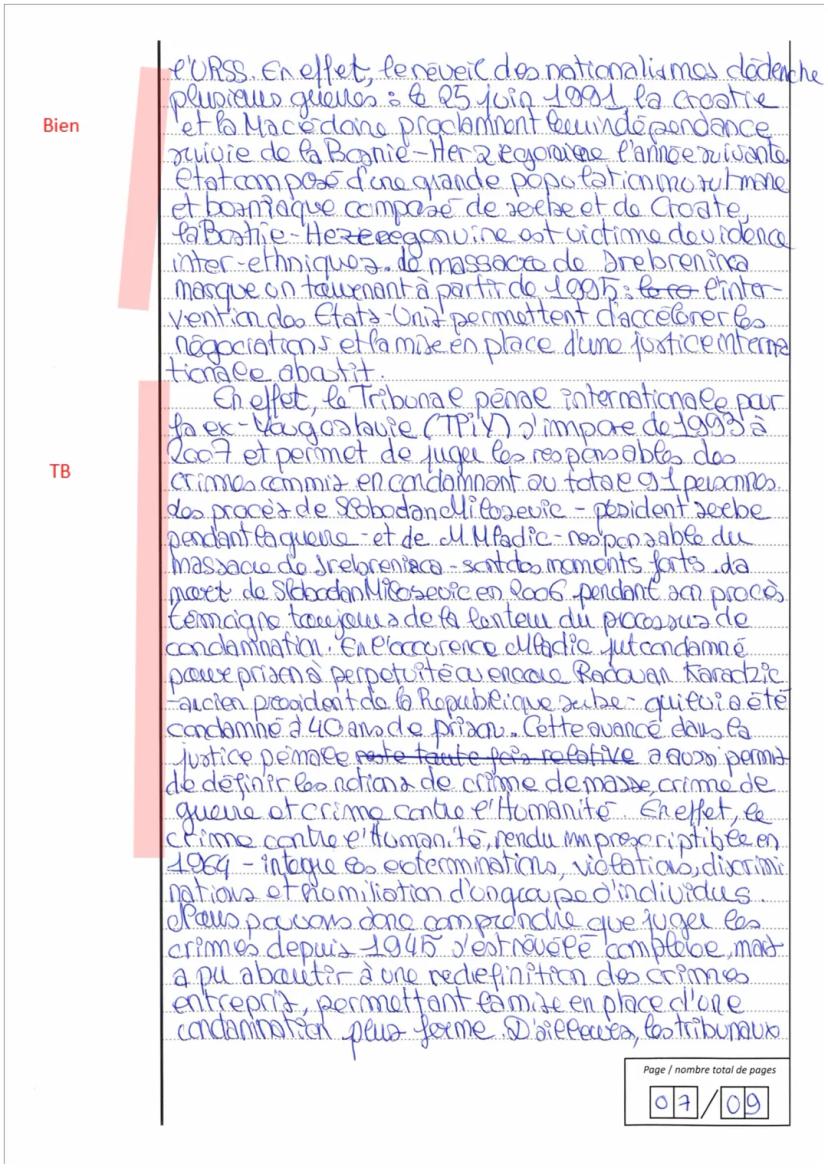 l'URSS. En effet, le réveil des nationalismes déclenche
plusieurs guerres : le 25 juin 1991, la Croatie
Bien
et la Macédoine proclamment leur indépendance
suivie de la Bosnie-Herzégovine l'année suivante.
Etat composé d'une grande population musulmane
et bosniaque composé de serbe et de Croate,
la Bosnie-Herzegovine est victime de violence
inter-ethniques. Le massacre de Srebrenica
marque un tournant à partir de 1995 : l'inter-
vention des Etats-Unis permettent d'accélérer les
négociations et la mise en place d'une justice interna
tionale aboutit.
En effet, le Tribunal pénal internationale pour
la ex-Yougoslavie (TPIY) s'impose de 1993 à
2007 et permet de juger les responsables des
TB
crimes commis en condamnant au totale 91 personnes.
Les procès de Slobodan Milosevic - président serbe
pendant la guerre - et de M. Mladic - responsable du
massacre de Srebrenica - sont des moments forts. La
mort de Slobodan Milosevic en 2006 pendant son procès
témoigne toujours de la lenteur du processus de
condamnation. En l'occurence Mladic fut condamné
pour prison à perpetuité ou encore Radovan Karadzic
-ancien president de la Republique serbe- qui lui a été
condamné à 40 ans de prison. Cette avancé dans la
justice pénale reste toute fois relative a aussi permis
de définir les notions de crime de masse, crime de
guerre et crime contre l'Humanité. En effet, le
crime contre l'Humanité, rendu imprescriptible en
1964 - intègre les exterminations, violations, discrimi
nations et homiliation d'un groupe d'individus.
Nous pouvons donc comprendre que juger les
crimes depuis 1945 s'est révélé complexe, mais
a pu aboutir à une redefinition des crimes
entrepris, permettant la mise en place d'une
condamination plus ferme. D'ailleurs, les tribunaux
Page / nombre total de pages
07/09